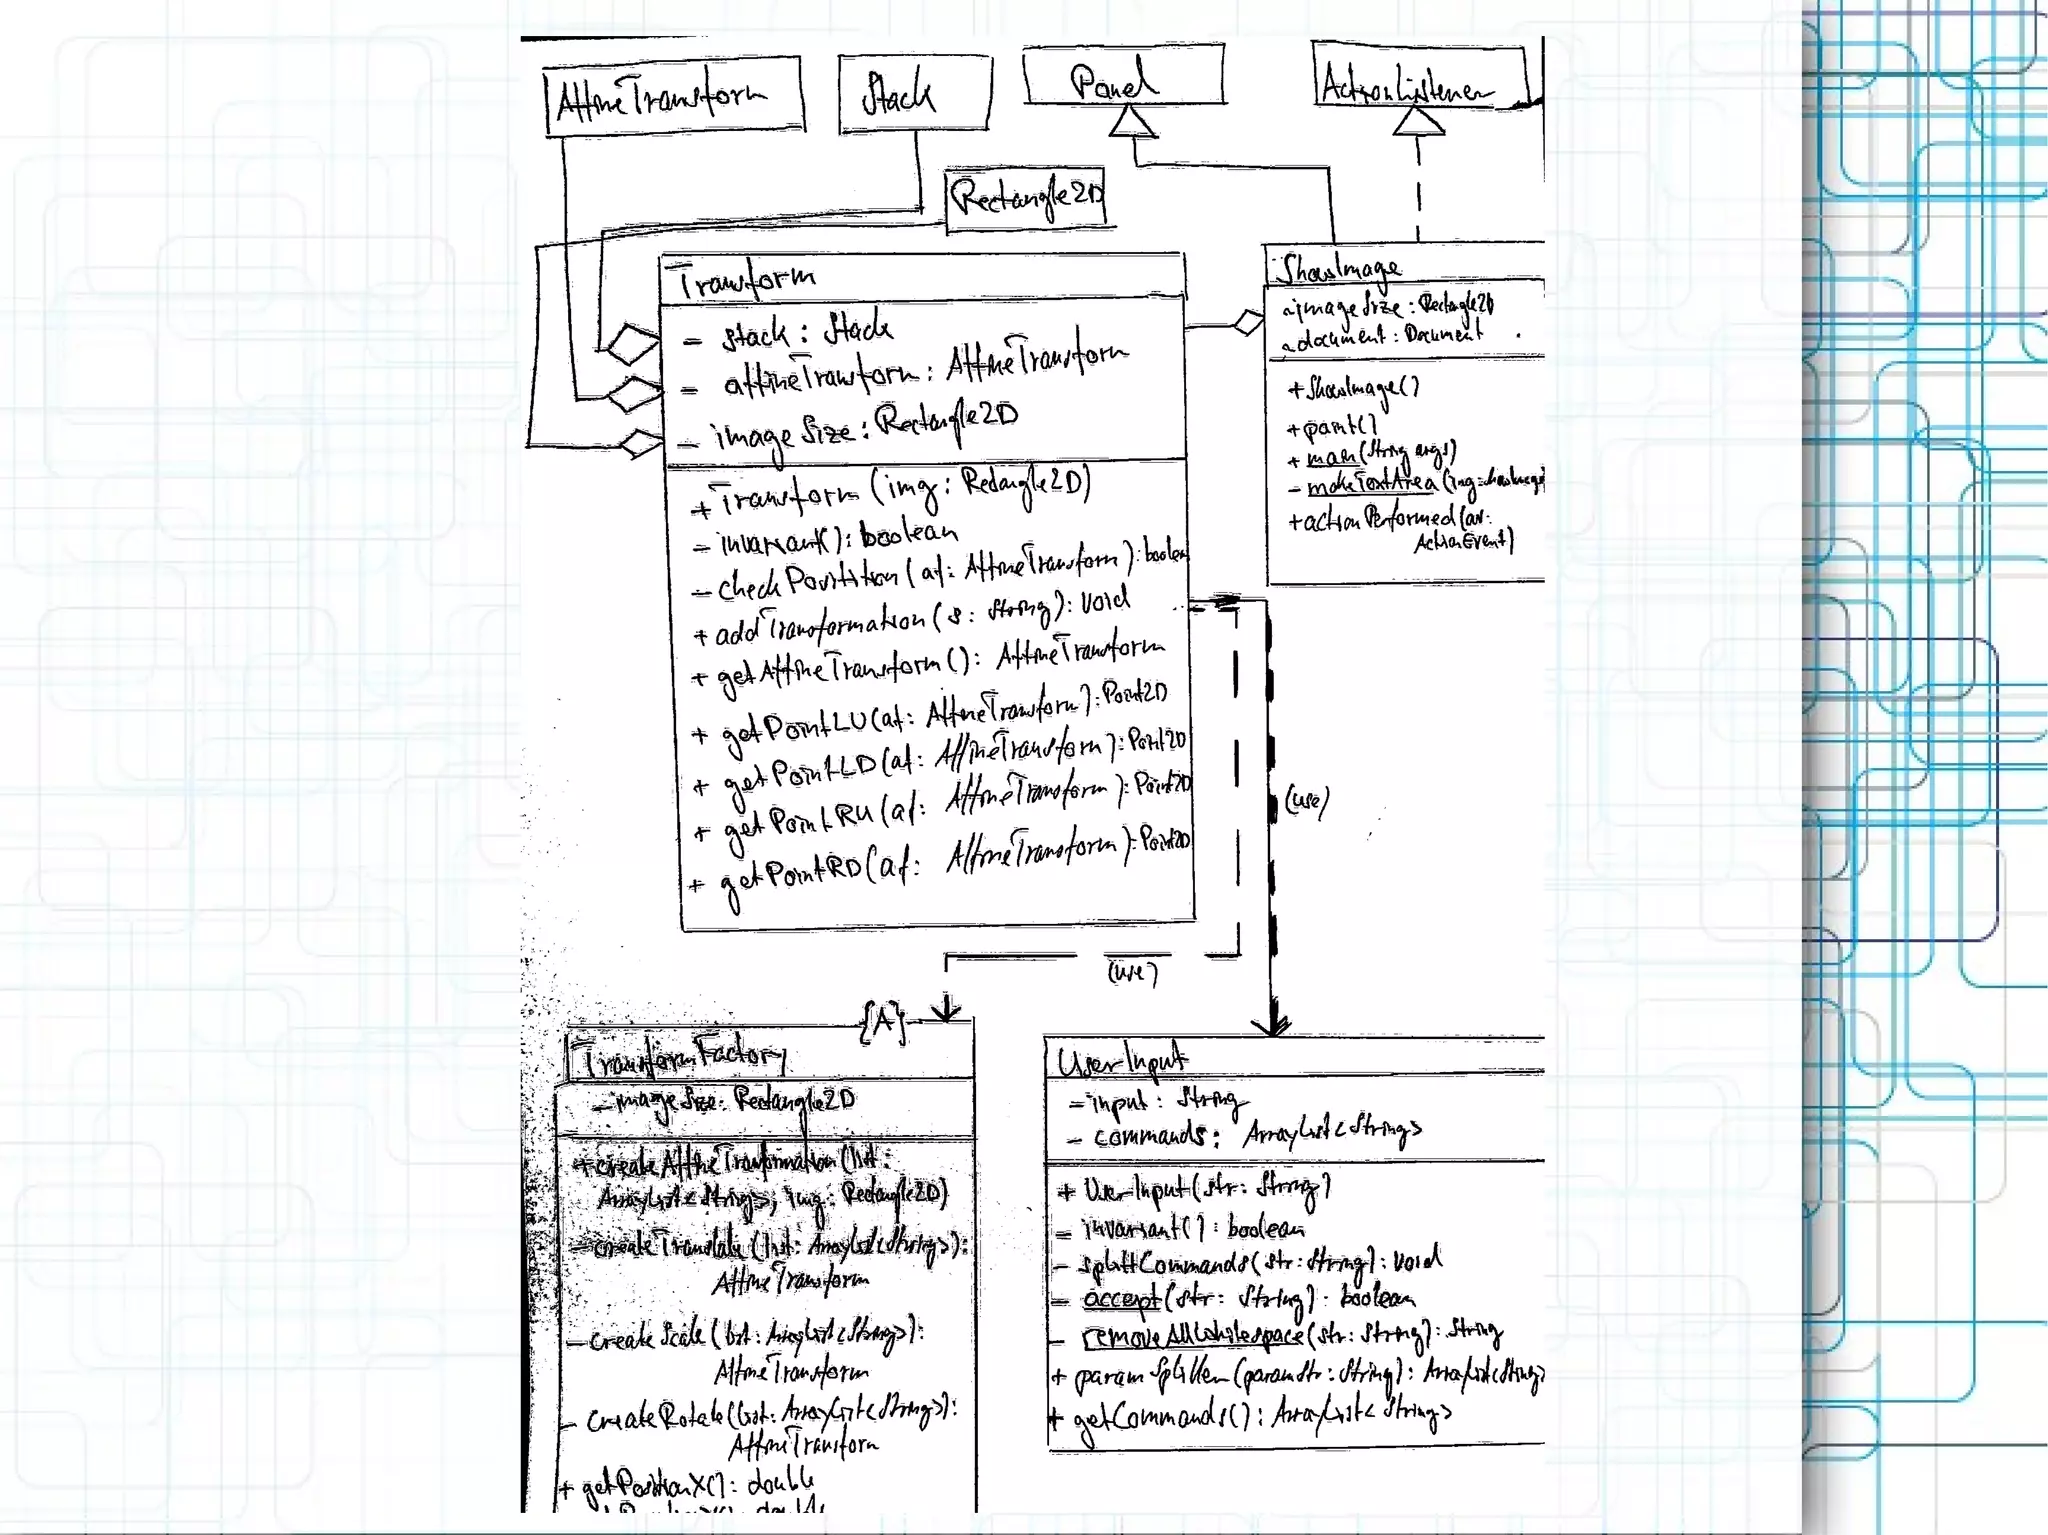 AffineTransform
Stack
Panel
ActionListener
Rectangle2D
Transform
- stack : Stack
- affineTransform : AffineTransform
- imageSize : Rectangle2D
+ Transform (img : Rectangle2D)
- invariant() : boolean
- checkPosition (at : AffineTransform) : boolean
+ addTransformation (s : String) : void
+ getAffineTransform() : AffineTransform
+ getPointLU(at : AffineTransform) : Point2D
+ getPointLD(at : AffineTransform) : Point2D
+ getPointRU(at : AffineTransform) : Point2D
+ getPointRD(at : AffineTransform) : Point2D
ShowImage
- imageSize : Rectangle2D
- document : Document
+ ShowImage()
+ paint()
+ main(String args)
- makeTextArea (img : ShowImage)
+ actionPerformed(av :
ActionEvent)
(use)
(use)
{A}
TransformFactory
- imageSize : Rectangle2D
+ createAffineTransformation (list :
ArrayList<String>, img : Rectangle2D)
- createTranslate (list : ArrayList<String>) :
AffineTransform
- createScale (list : ArrayList<String>) :
AffineTransform
- createRotate(list : ArrayList<String>) :
AffineTransform
+ getPositionX() : double
UserInput
- input : String
- commands : ArrayList<String>
+ UserInput(str : String)
- invariant() : boolean
- splittCommands(str : String) : void
- accept(str : String) : boolean
- removeAllWhitespace(str : String) : String
+ paramSplitter(paramStr : String) : ArrayList<String>
+ getCommands() : ArrayList<String>